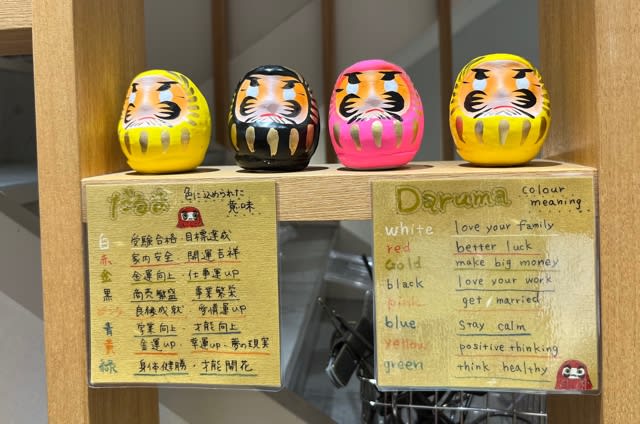 だるま 色に込められた
意味
白 受験合格・目標達成
赤 家内安全・開運吉祥
金 金運向上・仕事運up
黒 商売繁盛 事業繁栄
ピンク 良縁成就 愛情運up
青 学業向上 才能向上
黄 金運up・幸運up・夢の現実
緑 身体健勝・才能開花
Daruma colour
meaning
white love your family
red better luck
Gold make big money
black love your work
pink get married
blue stay calm
yellow positive thinking
green think healthy